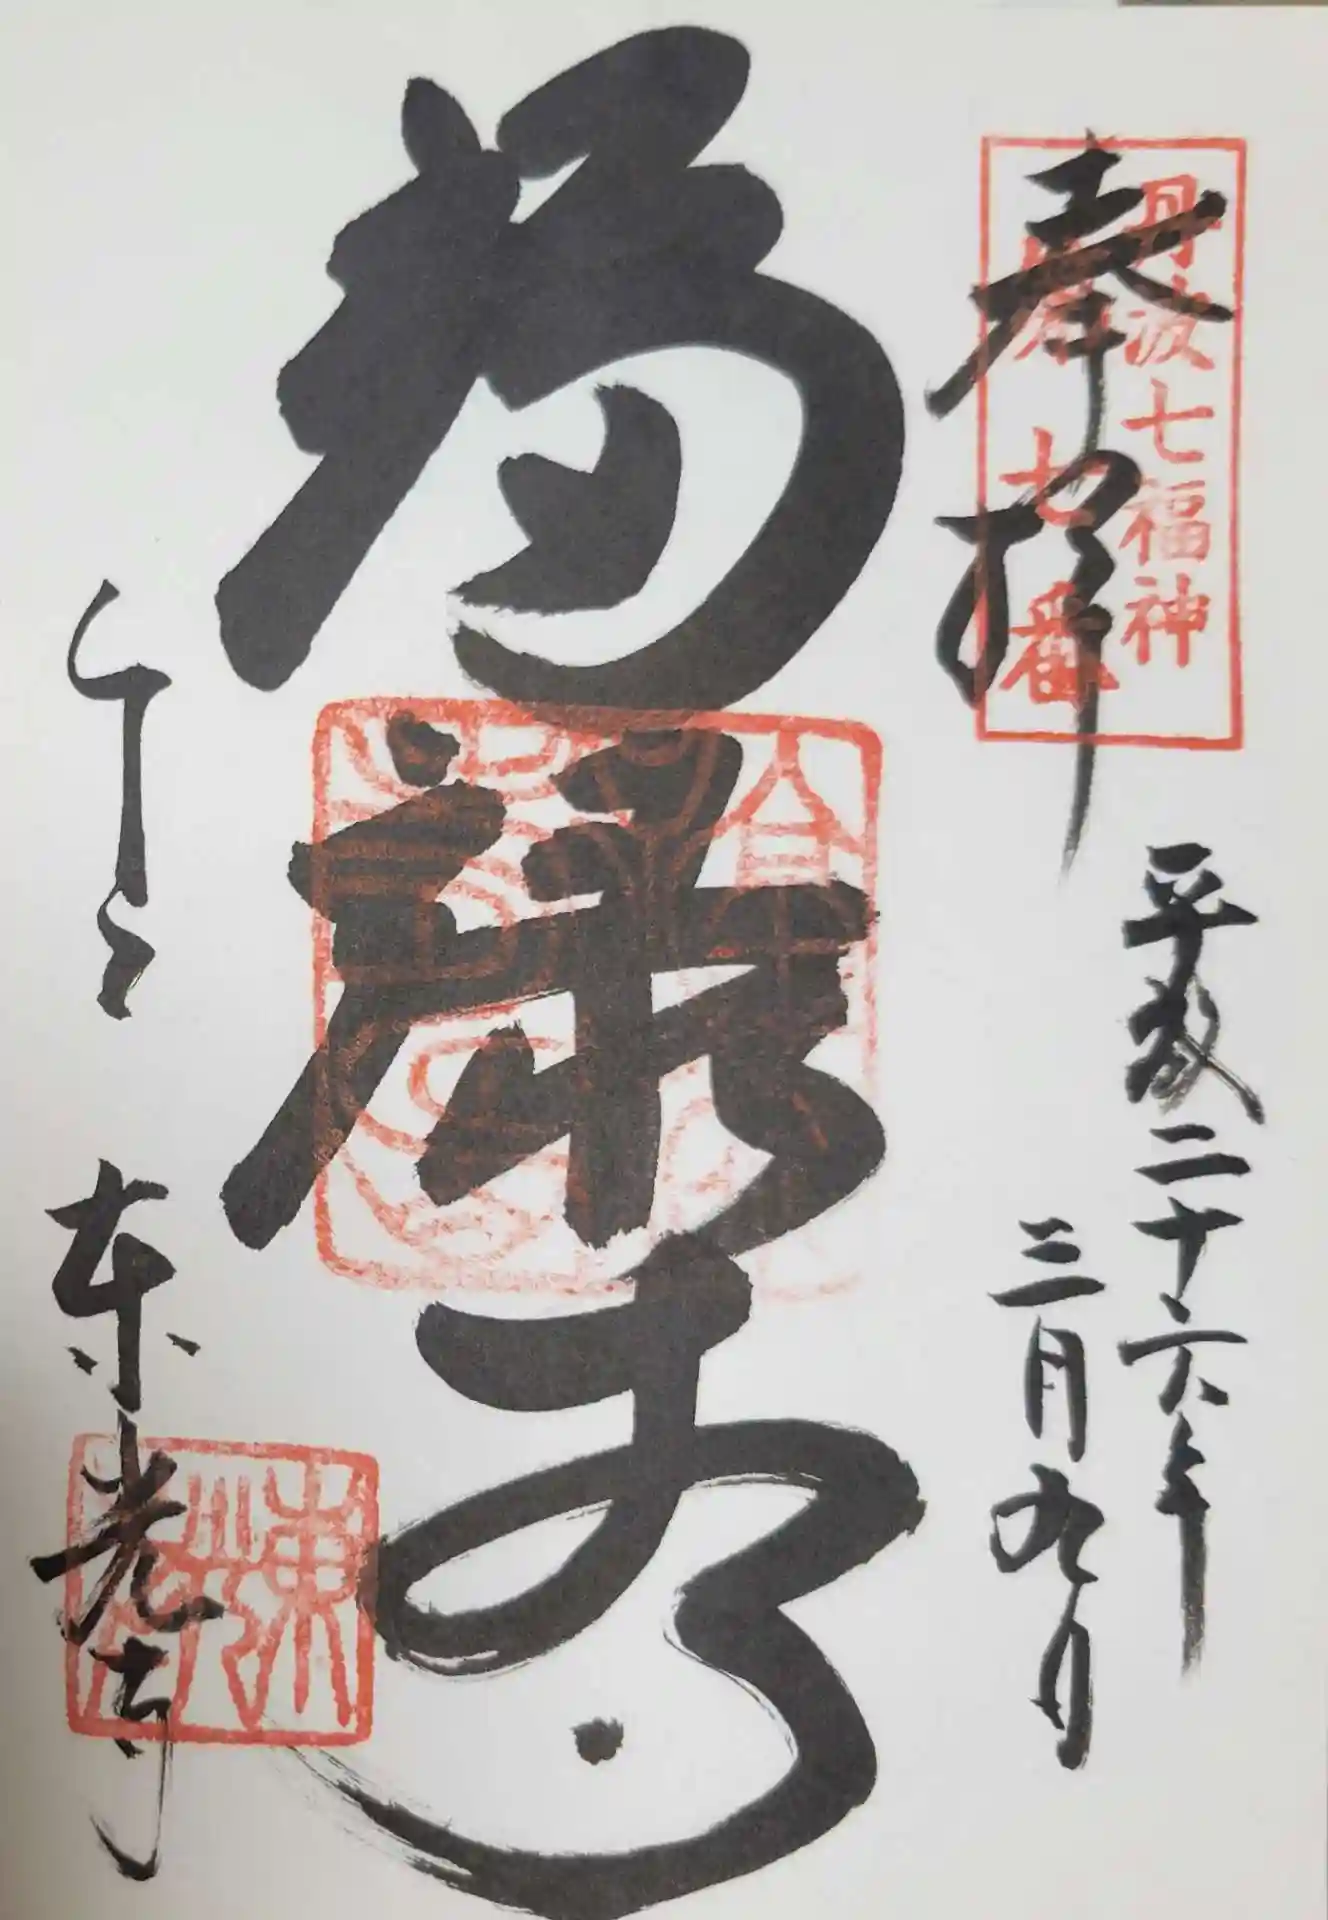 丹波七福神
第七番
奉拝
平成二十六年
三月九日
福禄寿
東光寺